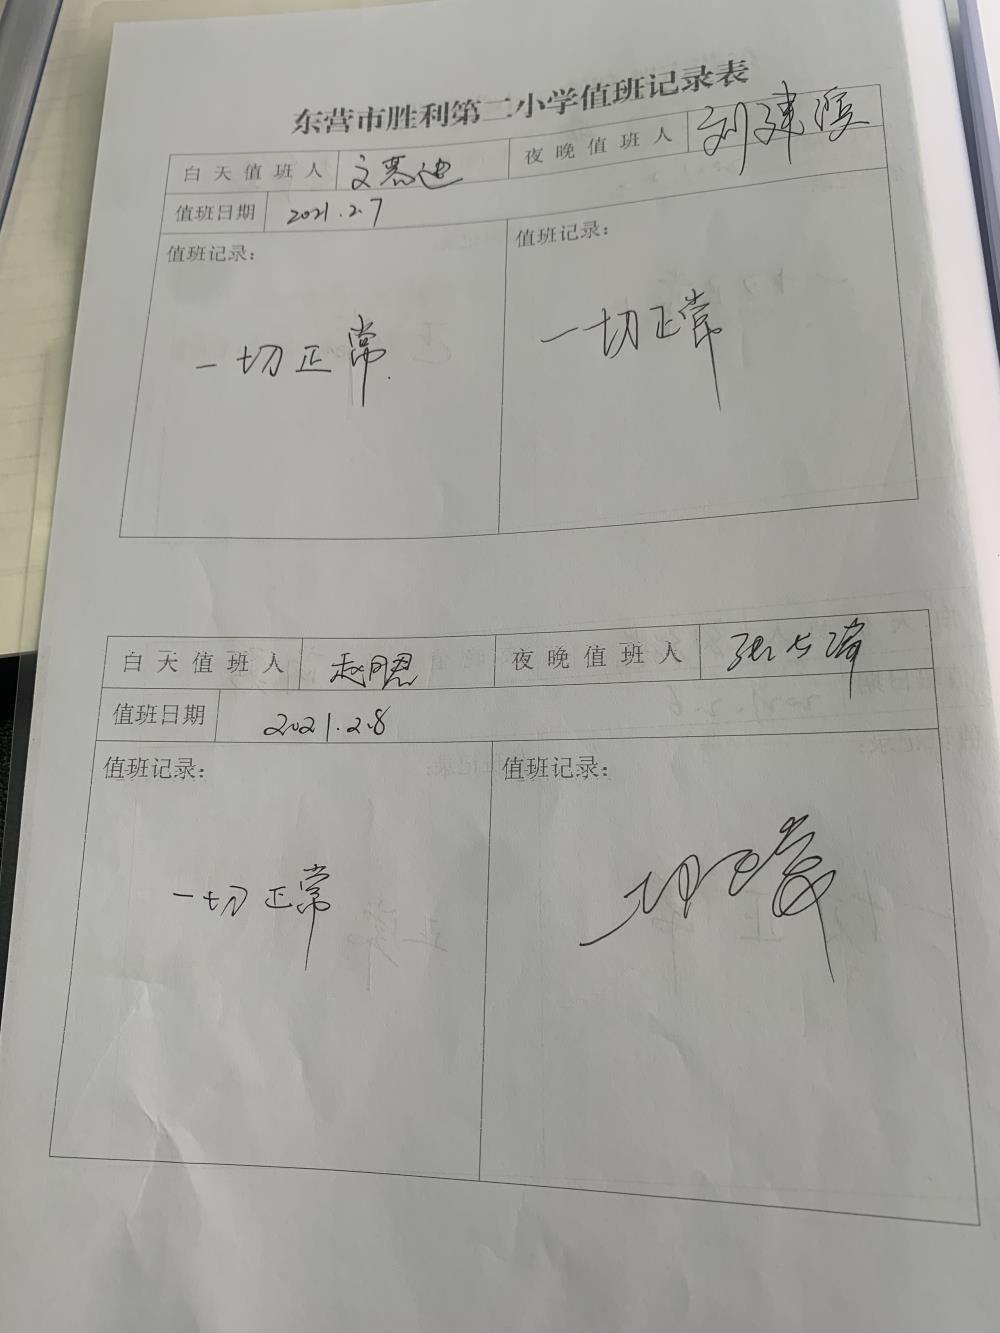 东营市胜利第二小学值班记录表
白天值班人 夜晚值班人 刘建
值班日期 2021.2.7
值班记录: 值班记录:
一切正常 一切正常
白天值班人 赵明恩 夜晚值班人
值班日期 2021.2.8
值班记录: 值班记录:
一切正常 一切正常